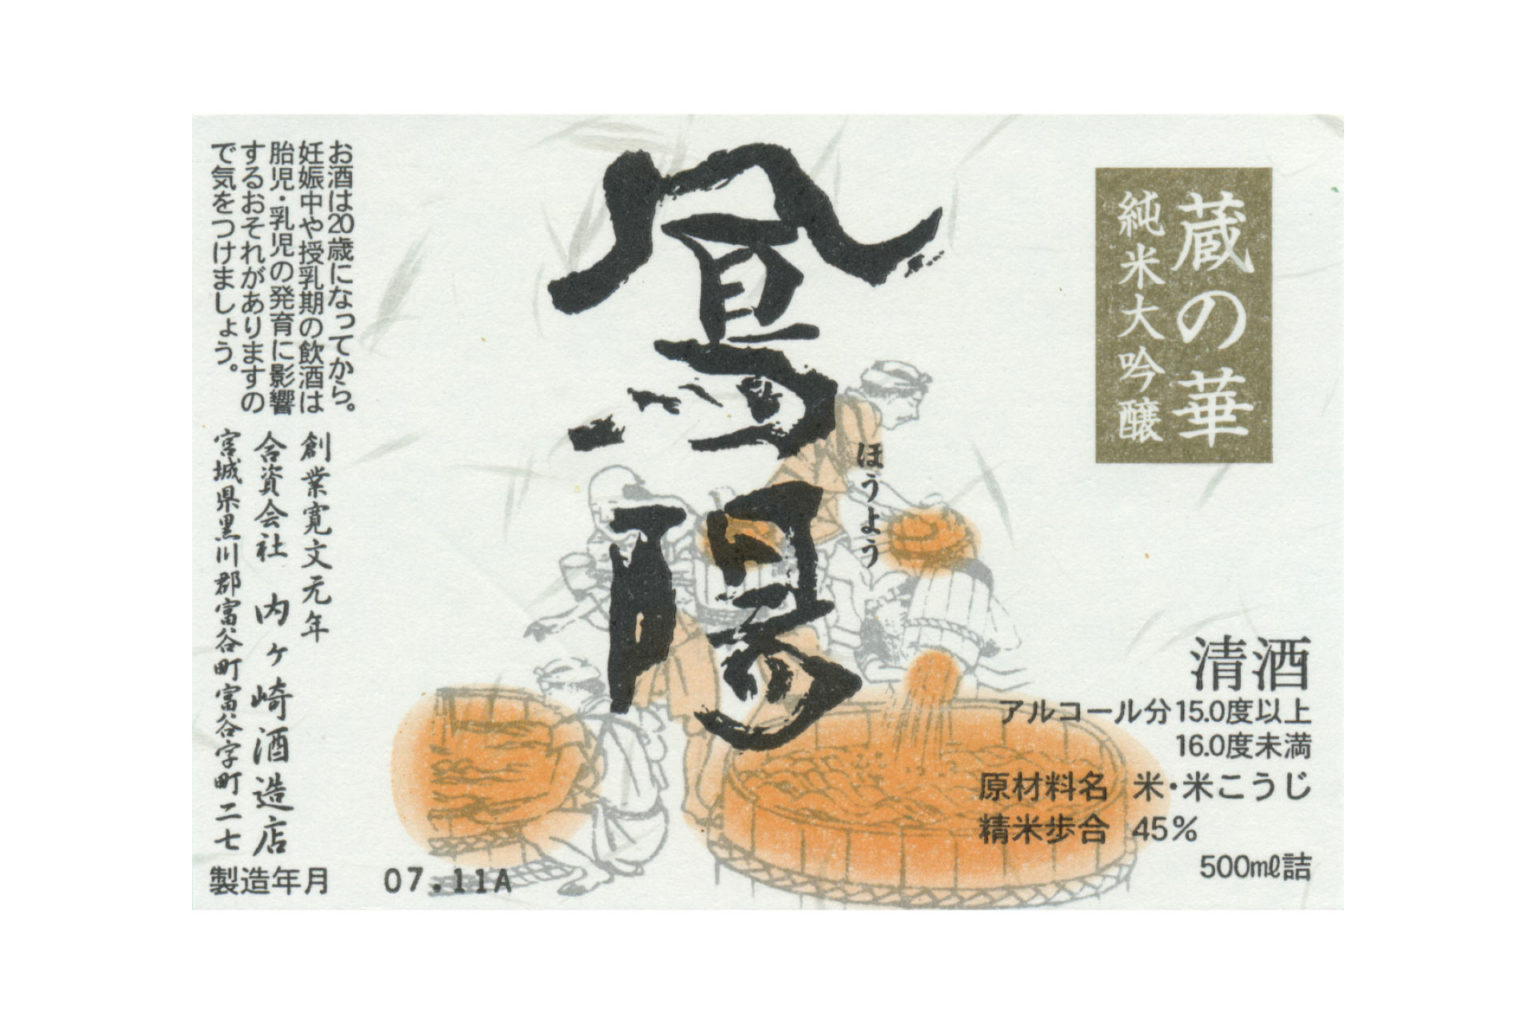 蔵の華
純米大吟醸
鳳陽
ほうよう
清酒
アルコール分15.0度以上
16.0度未満
原材料名 米・米こうじ
精米歩合 45%
500ml詰
お酒は20歳になってから。
妊娠中や授乳期の飲酒は
胎児・乳児の発育に影響
するおそれがありますの
で気をつけましょう。
創業寛文元年
合資会社 内ヶ崎酒造店
宮城県黒川郡富谷町富谷字町二七
製造年月 07.11A